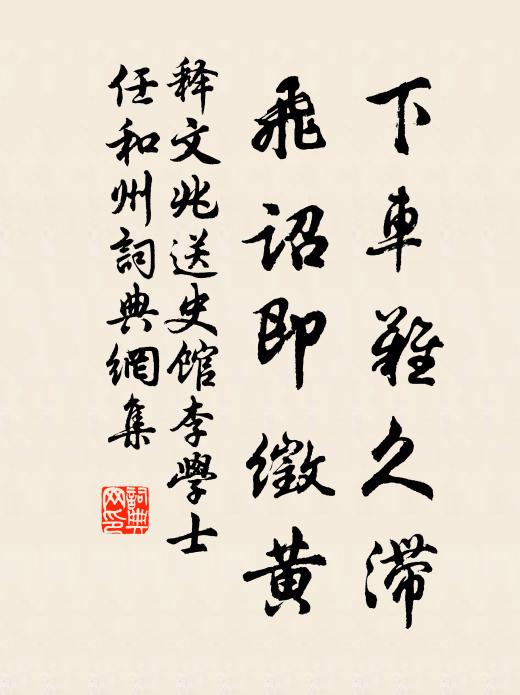 下車難久滯
飛詔即徵黃
释文兆送史館李學士
任和州詞典網集
詞典
网印